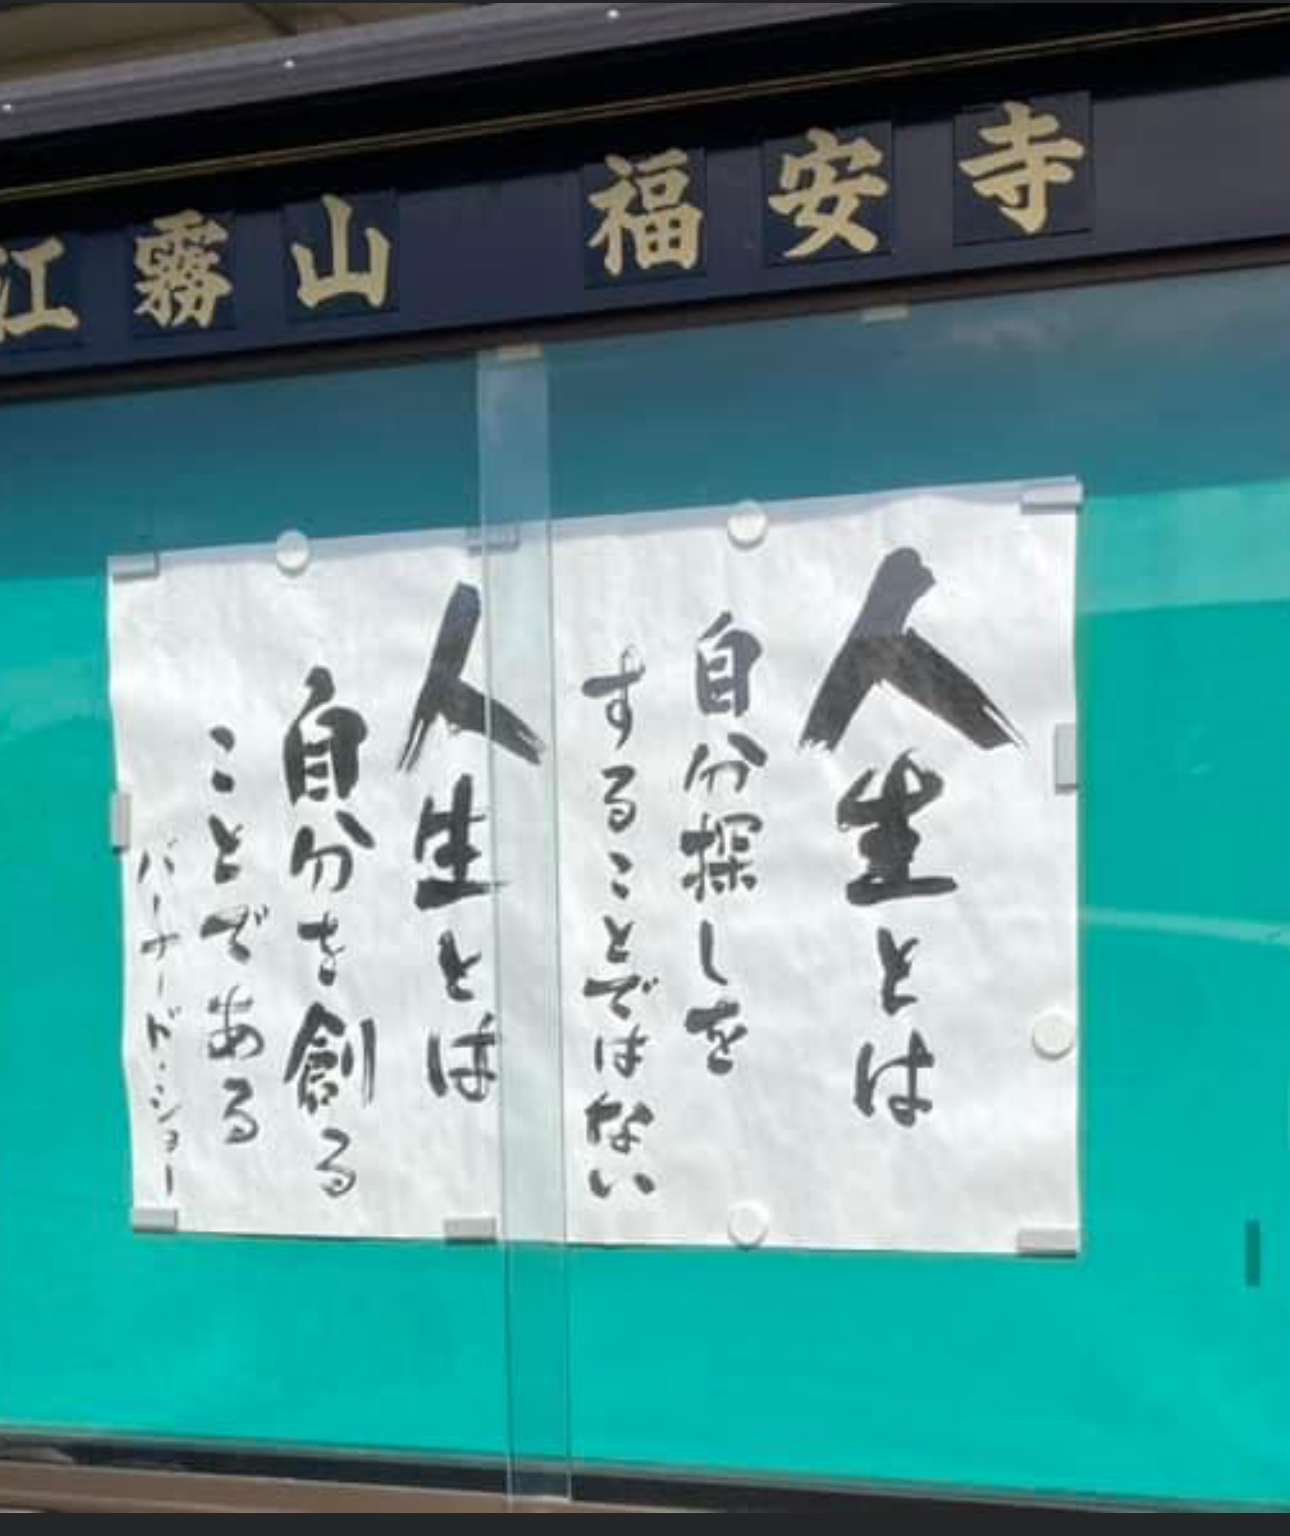 江霧山 福安寺
人生とは
自分探しを
することではない
人生とは
自分を創る
ことである
バーナード・ショー